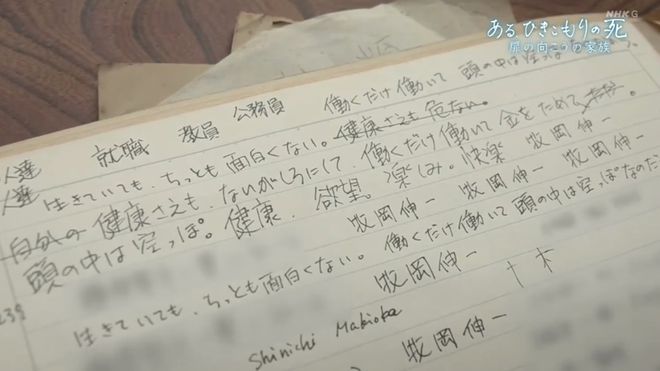 NHK G
ある ひきこもりの死
扉の向こうの家族
人達 就職 教員 公務員 働くだけ働いて 頭の中は空っぽ
人達 生きていても、ちっとも面白くない。健康さえも危ない。
自分の健康さえも、ないがしろにして 働くだけ働いて金をためて
頭の中は空っぽ。健康、欲望、楽しみ。快楽 牧岡伸一
牧岡伸一 牧岡伸一 牧岡伸一
生きていても、ちっとも面白くない。働くだけ働いて頭の中は空っぽなのだ
牧岡伸一
Shinichi Makioka
牧岡伸一